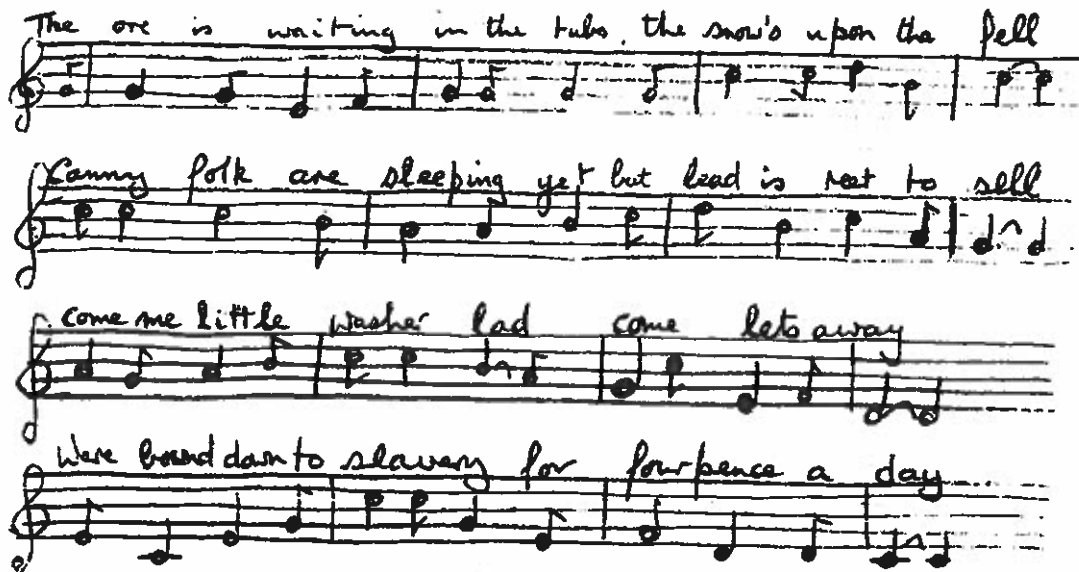 The ore is waiting in the tubs, the snow's upon the fell
Canny folk are sleeping yet but lead is reet to sell
Come me little washer lad come lets away
Were bound down to slavery for fourpence a day